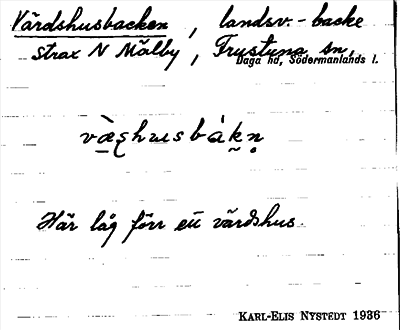 Värdshusbacken, landsv.-backe
strax N Mälby, Frustuna sn,
Daga hd, Södermanlands l.
Här låg förr ett värdshus.
KARL-ELIS NYSTEDT 1936